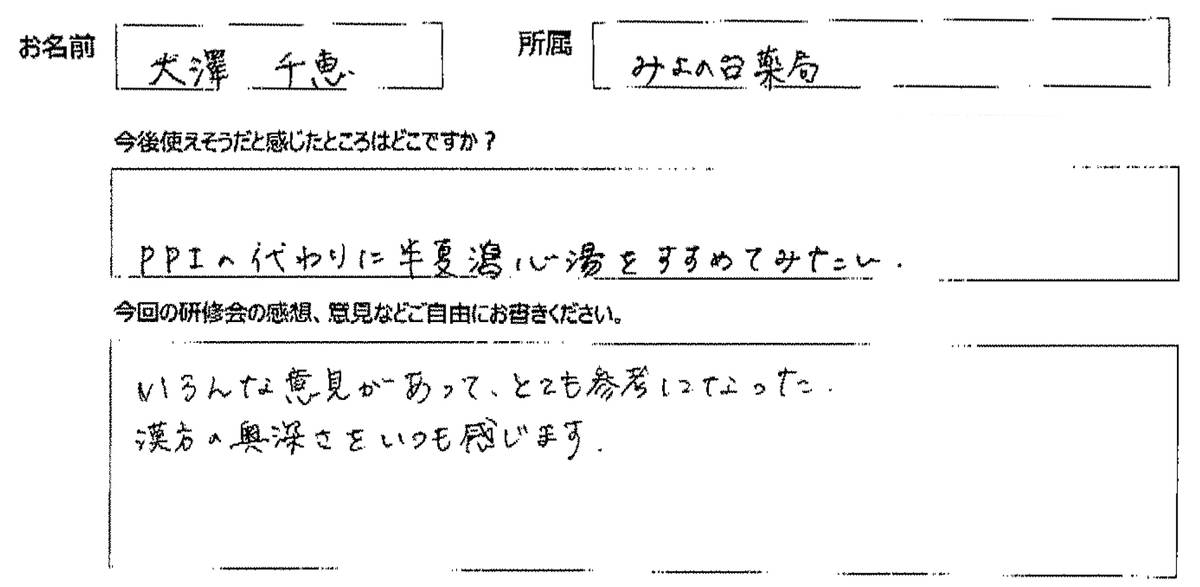 お名前 大澤 千恵 所属 みよの台薬局
今後使えそうだと感じたところはどこですか?
PPIの代わりに半夏瀉心湯をすすめてみたい.
今回の研修会の感想、意見などご自由にお書きください。
いろんな意見があって、とても参考になった.
漢方の奥深さをいつも感じます.